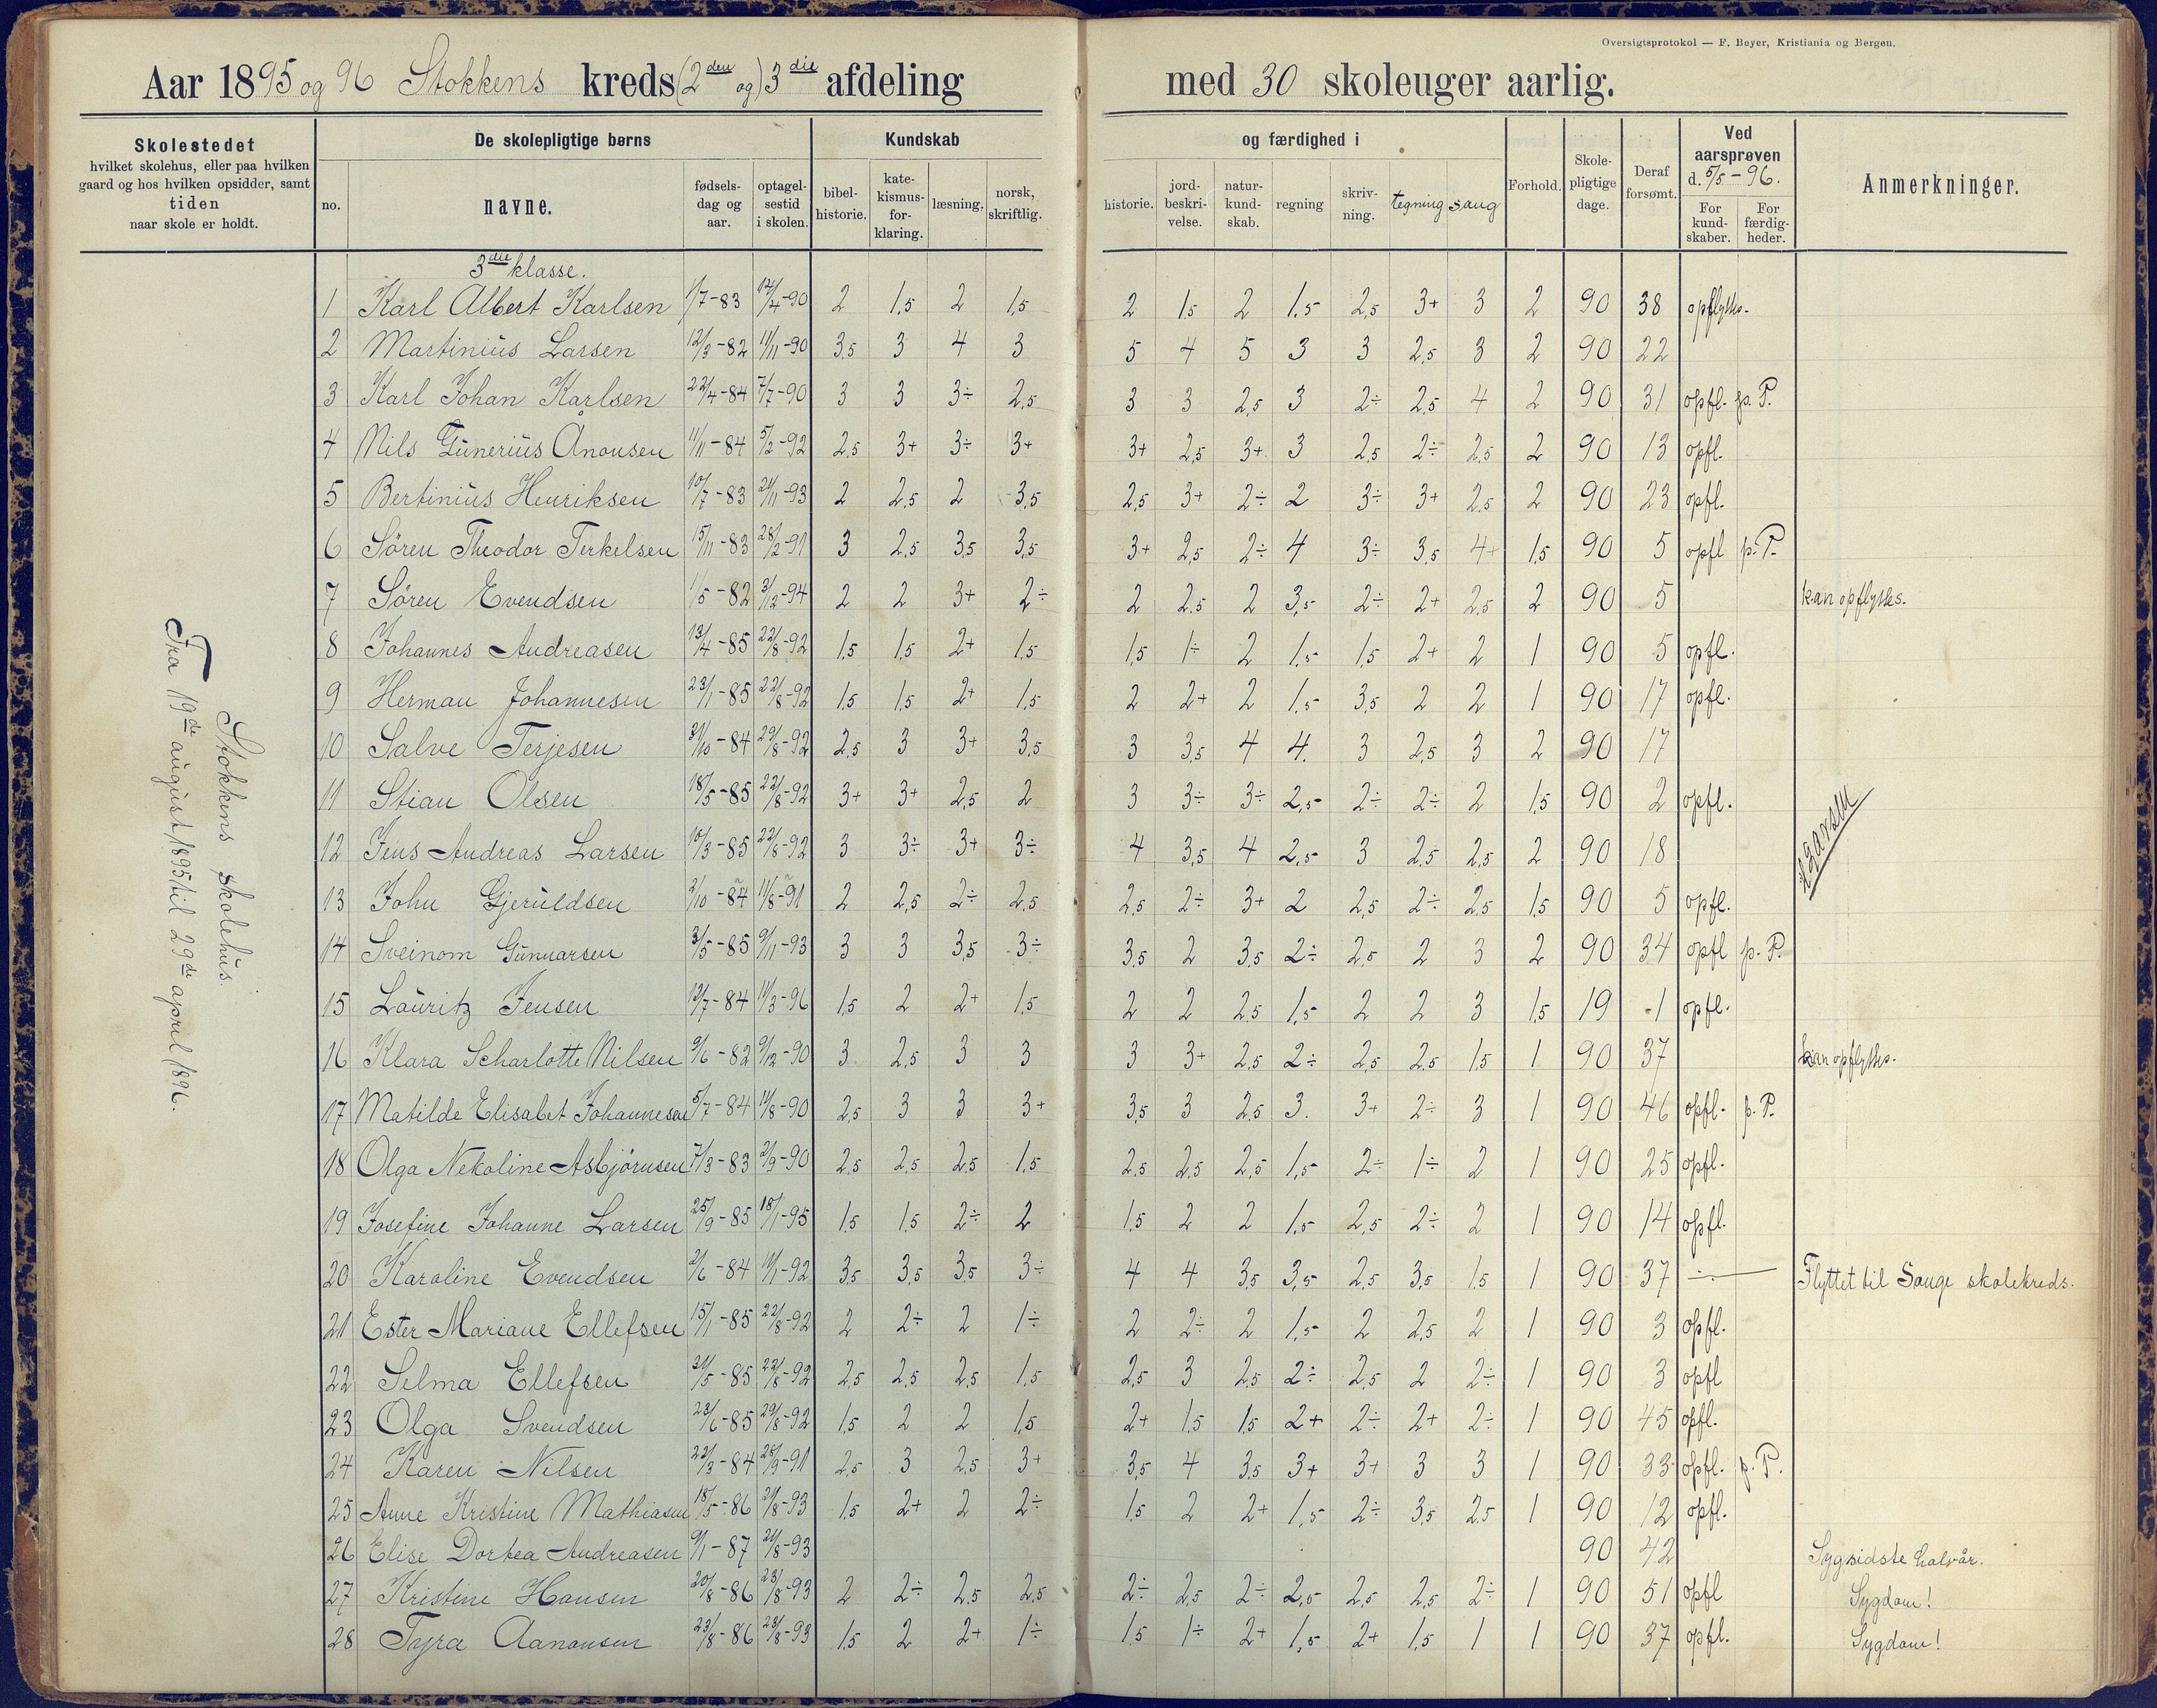 Oversigtsprotokol — F. Beyer, Kristiania og Bergen.
Aar 1895 og 96 Stokkens kreds (2den og) 3die afdeling med 30 skoleuger aarlig.
Skolestedet
hvilket skolehus, eller paa hvilken
gaard og hos hvilken opsidder, samt
tiden
naar skole er holdt.
De skolepligtige børns
no. navne. fødselsdag og aar. optagelsestid i skolen.
Kundskab og færdighed i
bibelhistorie. katekismusforklaring. læsning. norsk, skriftlig. historie. jordbeskrivelse. naturkundskab. regning skrivning. tegning sang
Forhold. Skolepligtige dage. Deraf forsømt.
Ved aarsprøven d. 5/5 - 96.
For kundskaber. For færdigheder.
Anmerkninger.
Stokkens skolehus.
Fra 19de august 1895 til 29de april 1896.
3die klasse.
1 Karl Albert Karlsen 1/7-83 14/4-90 2 1,5 2 1,5 2 1,5 2 1,5 2,5 3+ 3 2 90 38 opflyttes.
2 Martinius Larsen 12/3-82 11/11-90 3,5 3 4 3 5 4 5 3 3 2,5 3 2 90 22
3 Karl Johan Karlsen 22/4-84 7/7-90 3 3 3÷ 2,5 3 3 2,5 3 2÷ 2,5 4 2 90 31 opfl. p. P.
4 Nils Gunerius Ånonsen 11/11-84 5/2-92 2,5 3+ 3÷ 3+ 3+ 2,5 3+ 3 2,5 2÷ 2,5 2 90 13 opfl.
5 Bertinius Henriksen 10/7-83 21/11-93 2 2,5 2 3,5 2,5 3+ 2÷ 2 3÷ 3+ 2,5 2 90 23 opfl.
6 Sören Theodor Terkelsen 15/11-83 28/2-91 3 2,5 3,5 3,5 3+ 2,5 2÷ 4 3÷ 3,5 4+ 1,5 90 5 opfl p. P.
7 Sören Evendsen 1/5-82 3/12-94 2 2 3+ 2÷ 2 2,5 2 3,5 2÷ 2+ 2,5 2 90 5 kan opflyttes.
8 Johannes Andreasen 13/4-85 22/8-92 1,5 1,5 2+ 1,5 1,5 1÷ 2 1,5 1,5 2+ 2 1 90 5 opfl.
9 Herman Johannesen 23/1-85 22/8-92 1,5 1,5 2+ 1,5 2 2+ 2 1,5 3,5 2 2 1 90 17 opfl.
10 Salve Terjesen 31/10-84 29/8-92 2,5 3 3+ 3,5 3 3,5 4 4. 3 2,5 3 2 90 17
11 Stian Olsen 18/5-85 22/8-92 3+ 3+ 2,5 2 3 3÷ 3÷ 2,5 2÷ 2÷ 2 1,5 90 2 opfl.
12 Jens Andreas Larsen 10/3-85 22/8-92 3 3÷ 3+ 3÷ 4 3,5 4 2,5 3 2,5 2,5 2 90 18
13 John Gjeruldsen 2/10-84 11/8-91 2 2,5 2÷ 2,5 2,5 2÷ 3+ 2 2,5 2÷ 2,5 1,5 90 5 opfl.
14 Sveinom Gunnarsen 3/5-85 9/11-93 3 3 3,5 3÷ 3,5 2 3,5 2÷ 2,5 2 3 2 90 34 opfl p. P.
15 Lauritz Jensen 12/7-84 11/3-96 1,5 2 2+ 1,5 2 2 2,5 1,5 2 2 3 1,5 19 1 opfl.
16 Klara Scharlotte Nilsen 9/6-82 9/12-90 3 2,5 3 3 3 3+ 2,5 2÷ 2,5 2,5 1,5 1 90 37 kan opflyttes.
17 Matilde Elisabet Johannesen 5/7-84 11/8-90 2,5 3 3 3+ 3,5 3 2,5 3. 3+ 2÷ 3 1 90 46 opfl. p. P.
18 Olga Nekoline Asbjörnsen 7/3-83 2/9-90 2,5 2,5 2,5 1,5 2,5 2,5 2,5 1,5 2÷ 1÷ 2 1 90 25 opfl.
19 Josefine Johanne Larsen 25/9-85 18/1-95 1,5 1,5 2÷ 2 1,5 2 2 1,5 2,5 2÷ 2 1 90 14 opfl.
20 Karoline Evendsen 2/6-84 11/1-92 3,5 3,5 3,5 3÷ 4 4 3,5 3,5 2,5 3,5 1,5 1 90 37 Flyttet til Songe skolekreds.
21 Ester Mariane Ellefsen 15/1-85 22/8-92 2 2÷ 2 1÷ 2 2÷ 2 1,5 2 2,5 2 1 90 3 opfl.
22 Selma Ellefsen 31/5-85 22/8-92 2,5 2,5 2,5 1,5 2,5 3 2,5 2÷ 2,5 2 2÷ 1 90 3 opfl
23 Olga Svendsen 23/6-85 29/8-92 1,5 2 2 1,5 2+ 1,5 1,5 2+ 2÷ 2+ 2÷ 1 90 45 opfl.
24 Karen Nilsen 22/3-84 28/9-91 2,5 3 2,5 3+ 3,5 4 3,5 3+ 3+ 3 3 1 90 33 opfl. p. P.
25 Anne Kristine Mathiasen 18/5-86 21/8-93 1,5 2+ 2 2÷ 1,5 2 2+ 1,5 2÷ 3,5 2,5 1 90 12 opfl.
26 Elise Dortea Andreasen 9/1-87 21/8-93 90 42 Syg sidste halvår.
27 Kristine Hansen 20/8-86 23/8-93 2 2÷ 2,5 2,5 2÷ 2,5 2÷ 2,5 2,5 2,5 2÷ 1 90 51 opfl Sygdom!
28 Tyra Aanonsen 23/8-86 23/8-93 1,5 2 2+ 1÷ 1,5 1÷ 2+ 1,5 2+ 1,5 1 1 90 37 opfl. Sygdom!